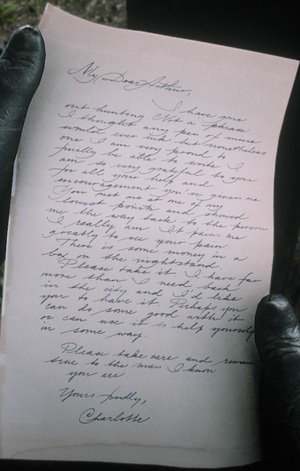 My Dear Arthur,
I have gone
out hunting Not a phrase
I thought any pen of mine
would ever ink but nonetheless
one I am very proud to
finally be able to write. I
am so very grateful to you
for all your help and
encouragement you've given me
You met me at one of my
lowest points and showed
me the way back to the person
I really am. It pains me
greatly to see your pain.
There is some money in a
box on the nightstand.
Please take it. I have far
more than I need back
in the city and I'd like
you to have it. Perhaps you
can do some good with it
or can use it to help yourself
in some way.
Please take care and remain
true to the man I know
you are.
Yours fondly,
Charlotte